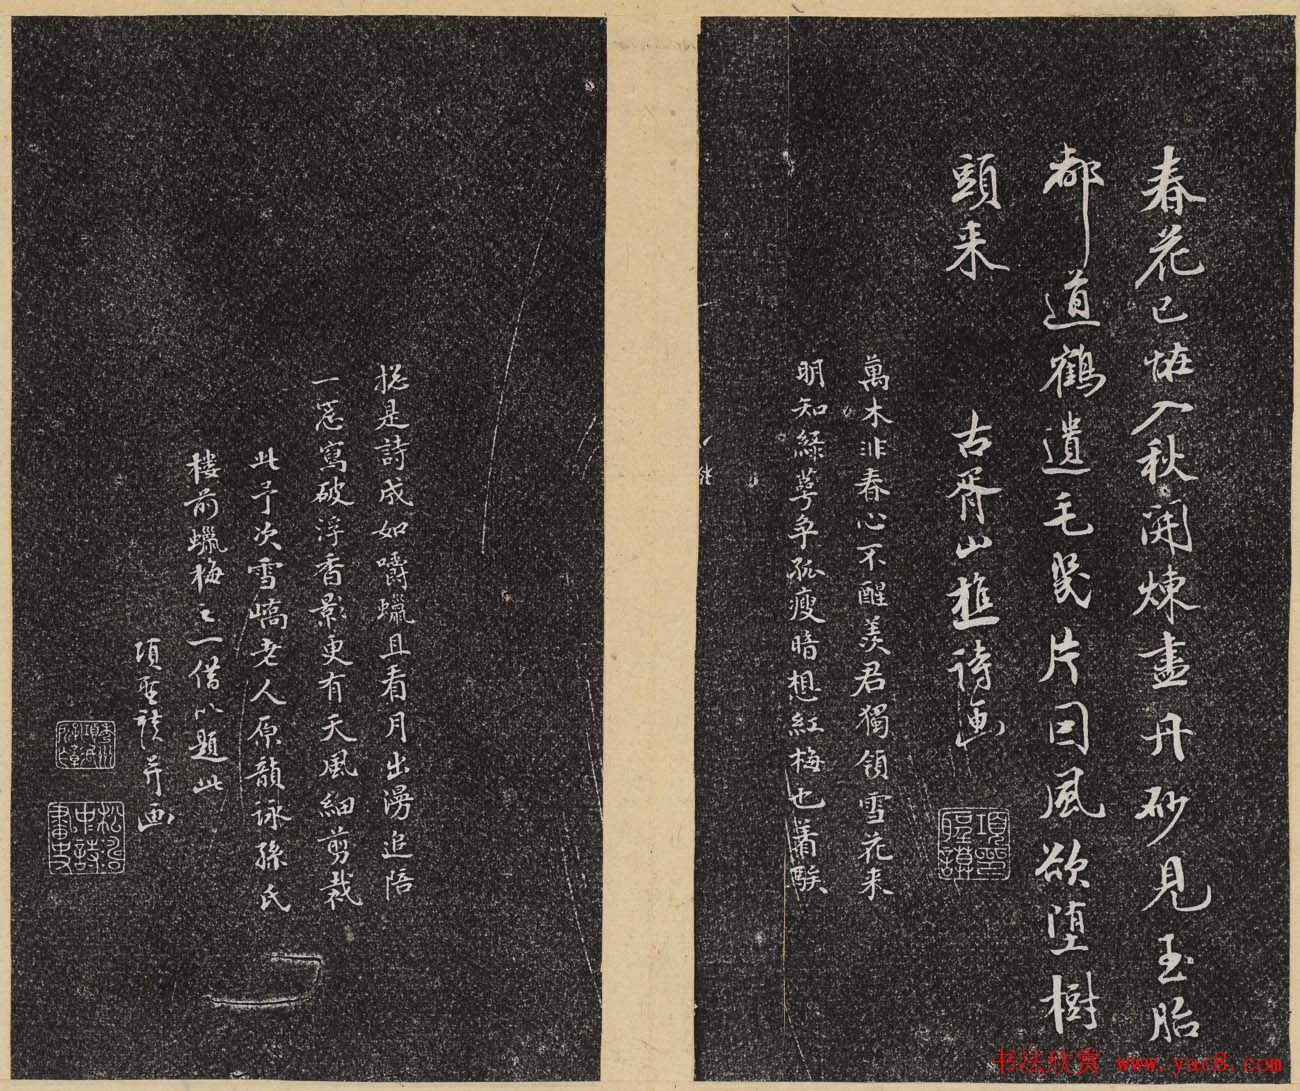 春花已怪入秋開煉盡丹砂見玉胎
都道鶴遺毛幾片回風欲堕樹
頭来
古胥山樵詩画
項聖謨印
萬木非春心不醒羨君獨領雪花来
明知緑萼争孤瘦暗想紅梅也著騃
挩是詩成如嚼蠟且看月出漫追陪
一&#x20;寫破浮香影更有天風細剪裁
此予次雪嶠老人原韻詠孫氏
楼前蠟梅之一借以題此
項聖謨并画
松濤
中詩
畫史
书法欣赏 www.yac8.com